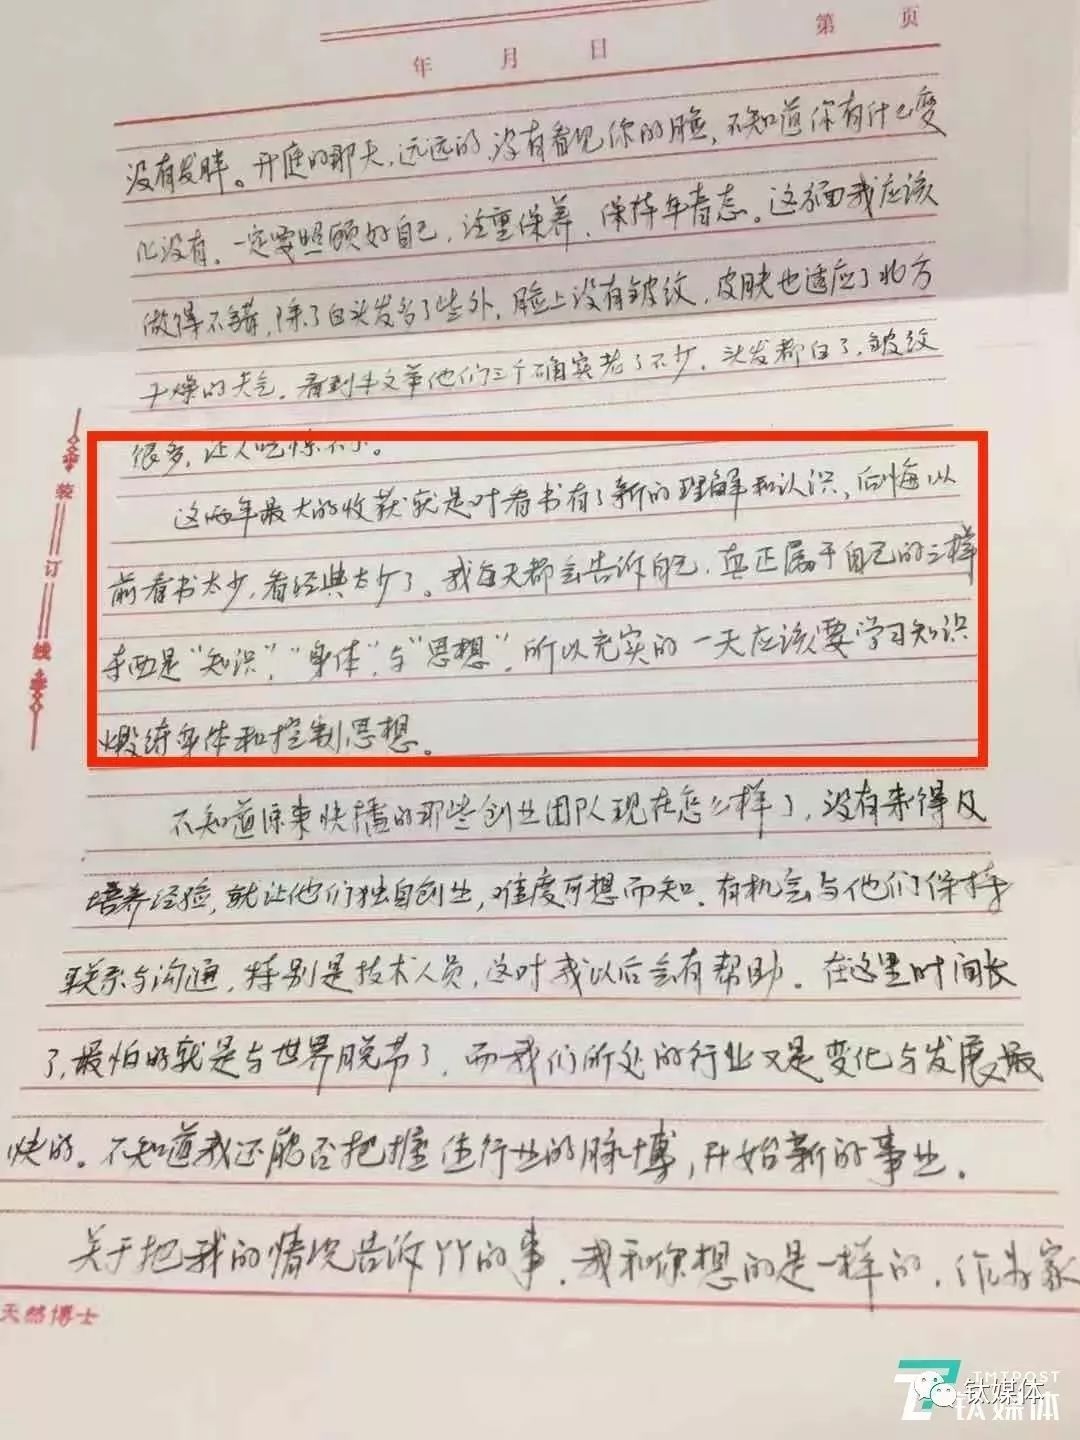 第 页
年 月 日
没有发胖。开庭的那天,远远的,没有看见你的脸,不知道你有什么变
化没有,一定要照顾好自己,注重保养,保持年青态。这方面我应该
做得不错,除了白头发多了些外,脸上没有皱纹,皮肤也适应了北方
干燥的天气。看到牛文举他们三个确实老了不少,头发都白了,皱纹
很多,让人吃惊不小。
这两年最大的收获就是对看书有了新的理解和认识,后悔以
前看书太少,看经典太少了。我每天都会告诉自己,真正属于自己的三样
东西是“知识”,“身体”,与“思想”,所以充实的一天应该要学习知识
煅练身体和控制思想。
不知道原来快播的那些创业团队现在怎么样了,没有来得及
培养经验,就让他们独自创业,难度可想而知。有机会与他们保持
联系与沟通,特别是技术人员,这对我以后会有帮助。在这里时间长
了,最怕的就是与世界脱节了,而我们所处的行业又是变化与发展最
快的。不知道我还能否把握住行业的脉博,开始新的事业。
关于把我的情况告诉丫丫的事,我和你想的是一样的,作为家
装
订
线
天然博士
TMTPOST
钛媒体
钛媒体